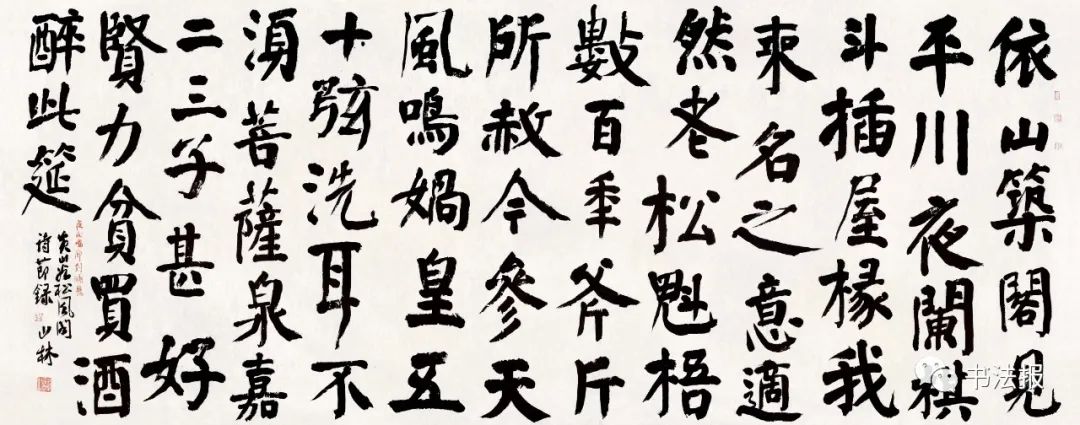 依山築閣見
平川夜闌
斗插屋椽我
來名之意適
然老松魁梧
數百年斧斤
所赦今參天
風鳴媧皇五
十弦洗耳不
須菩薩泉嘉
二三子甚好
賢力貧買酒
醉此筵
黄山谷松風阁
诗節錄 山林
书法报